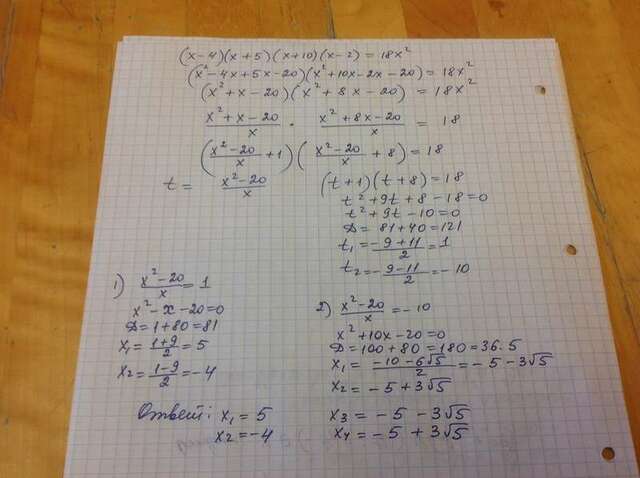 (x-4)(x+5)(x+10)(x-2)=18x²
(x²-4x+5x-20)(x²+10x-2x-20)=18x²
(x²+x-20)(x²+8x-20)=18x²
(x²+x-20)/x · (x²+8x-20)/x = 18
((x²-20)/x+1)((x²-20)/x+8)=18
t = (x²-20)/x
(t+1)(t+8)=18
t²+9t+8-18=0
t²+9t-10=0
D=81+40=121
t₁=(-9+11)/2=1
t₂=(-9-11)/2=-10
1) (x²-20)/x=1
x²-x-20=0
D=1+80=81
x₁=(1+9)/2=5
x₂=(1-9)/2=-4
2) (x²-20)/x=-10
x²+10x-20=0
D=100+80=180=36·5
x₁=(-10-6√5)/2=-5-3√5
x₂=-5+3√5
Ответ: x₁=5
x₂=-4
x₃=-5-3√5
x₄=-5+3√5